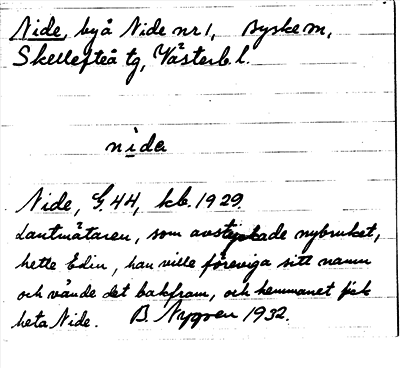 Nide, byå Nide nr 1, Byske m,
Skellefteå tg, Västerb. l.
nide
Nide, G. 44, kb. 1929.
Lantmätaren, som avstyckade nybruket,
hette Edin, han ville föreviga sitt namn
och vände det bakfram, och hemmanet fick
heta Nide. B. Nygren 1932.